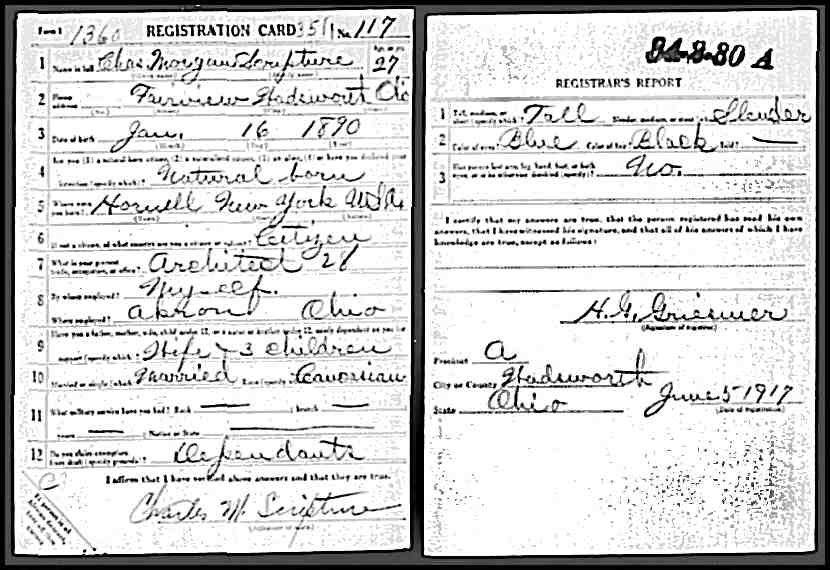 Form 1 1360 REGISTRATION CARD 351 No. 117
1 Name in full Chas Morgan Scripture Age, in yrs. 27
2 Home address Fairview Wadsworth Ohio
3 Date of birth Jan. 16 1890
4 Are you (1) a natural born citizen, (2) a naturalized citizen, (3) an alien, (4) or have you declared your
intention (specify which)? Natural born
5 Where were you born? Hornell New York USA
6 If not a citizen, of what country are you a citizen or subject? Citizen
7 What is your present trade, occupation, or office? Architect 28
8 By whom employed? Myself.
Where employed? Akron Ohio
9 Have you a father, mother, wife, child under 12, or a sister or brother under 12, solely dependent on you for
support (specify which)? Wife & 3 children
10 Married or single (which)? Married Race (specify which)? Caucasian
11 What military service have you had? Rank — ; branch —
years — ; Nation or State —
12 Do you claim exemption from draft (specify grounds)? Dependants
I affirm that I have verified above answers and that they are true.
Charles M Scripture
(Signature or mark)
34-3-80 A
REGISTRAR'S REPORT
1 Tall, medium, or short (specify which)? Tall Slender, medium, or stout (which)? Slender
2 Color of eyes? Blue Color of hair? Black Bald? —
3 Has person lost arm, leg, hand, foot, or both
eyes, or is he otherwise disabled (specify)? No.
I certify that my answers are true, that the person registered has read his own
answers, that I have witnessed his signature, and that all of his answers of which I have
knowledge are true, except as follows:
H. G. Griesmer
(Signature of registrar)
Precinct A
City or County Wadsworth
State Ohio June 5 1917
(Date of registration)